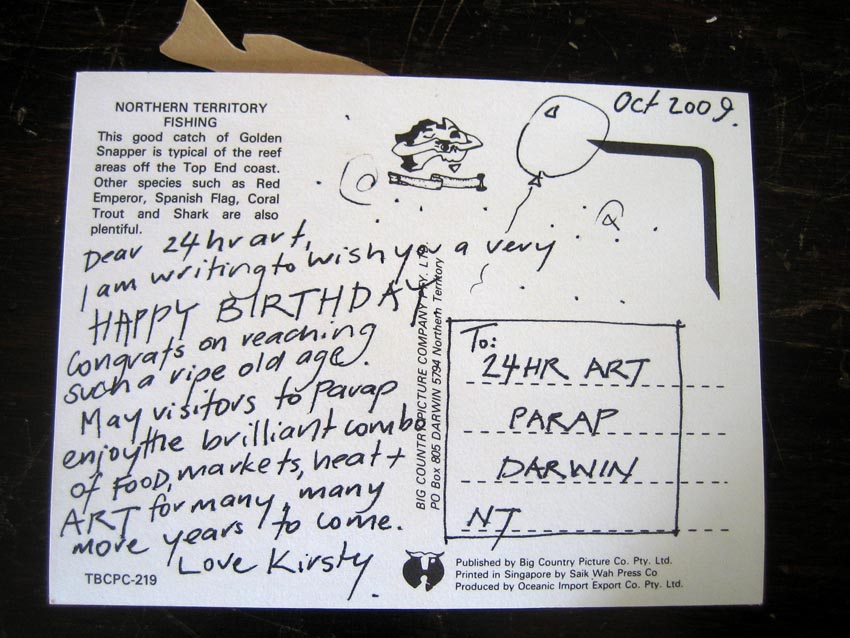 NORTHERN TERRITORY
FISHING
This good catch of Golden
Snapper is typical of the reef
areas off the Top End coast.
Other species such as Red
Emperor, Spanish Flag, Coral
Trout and Shark are also
plentiful.
Oct 2009.
Dear 24hr art,
I am writing to wish you a very
HAPPY BIRTHDAY
Congrats on reaching
such a ripe old age.
May visitors to Parap
enjoy the brilliant combo
of FOOD, markets, heat +
ART for many, many
more years to come.
Love Kirsty.
TBCPC-219
BIG COUNTRY PICTURE COMPANY PTY. LTD.
PO Box 805 DARWIN 5794 Northern Territory
To:
24HR ART
PARAP
DARWIN
NT
Published by Big Country Picture Co. Pty. Ltd.
Printed in Singapore by Saik Wah Press Co
Produced by Oceanic Import Export Co. Pty. Ltd.